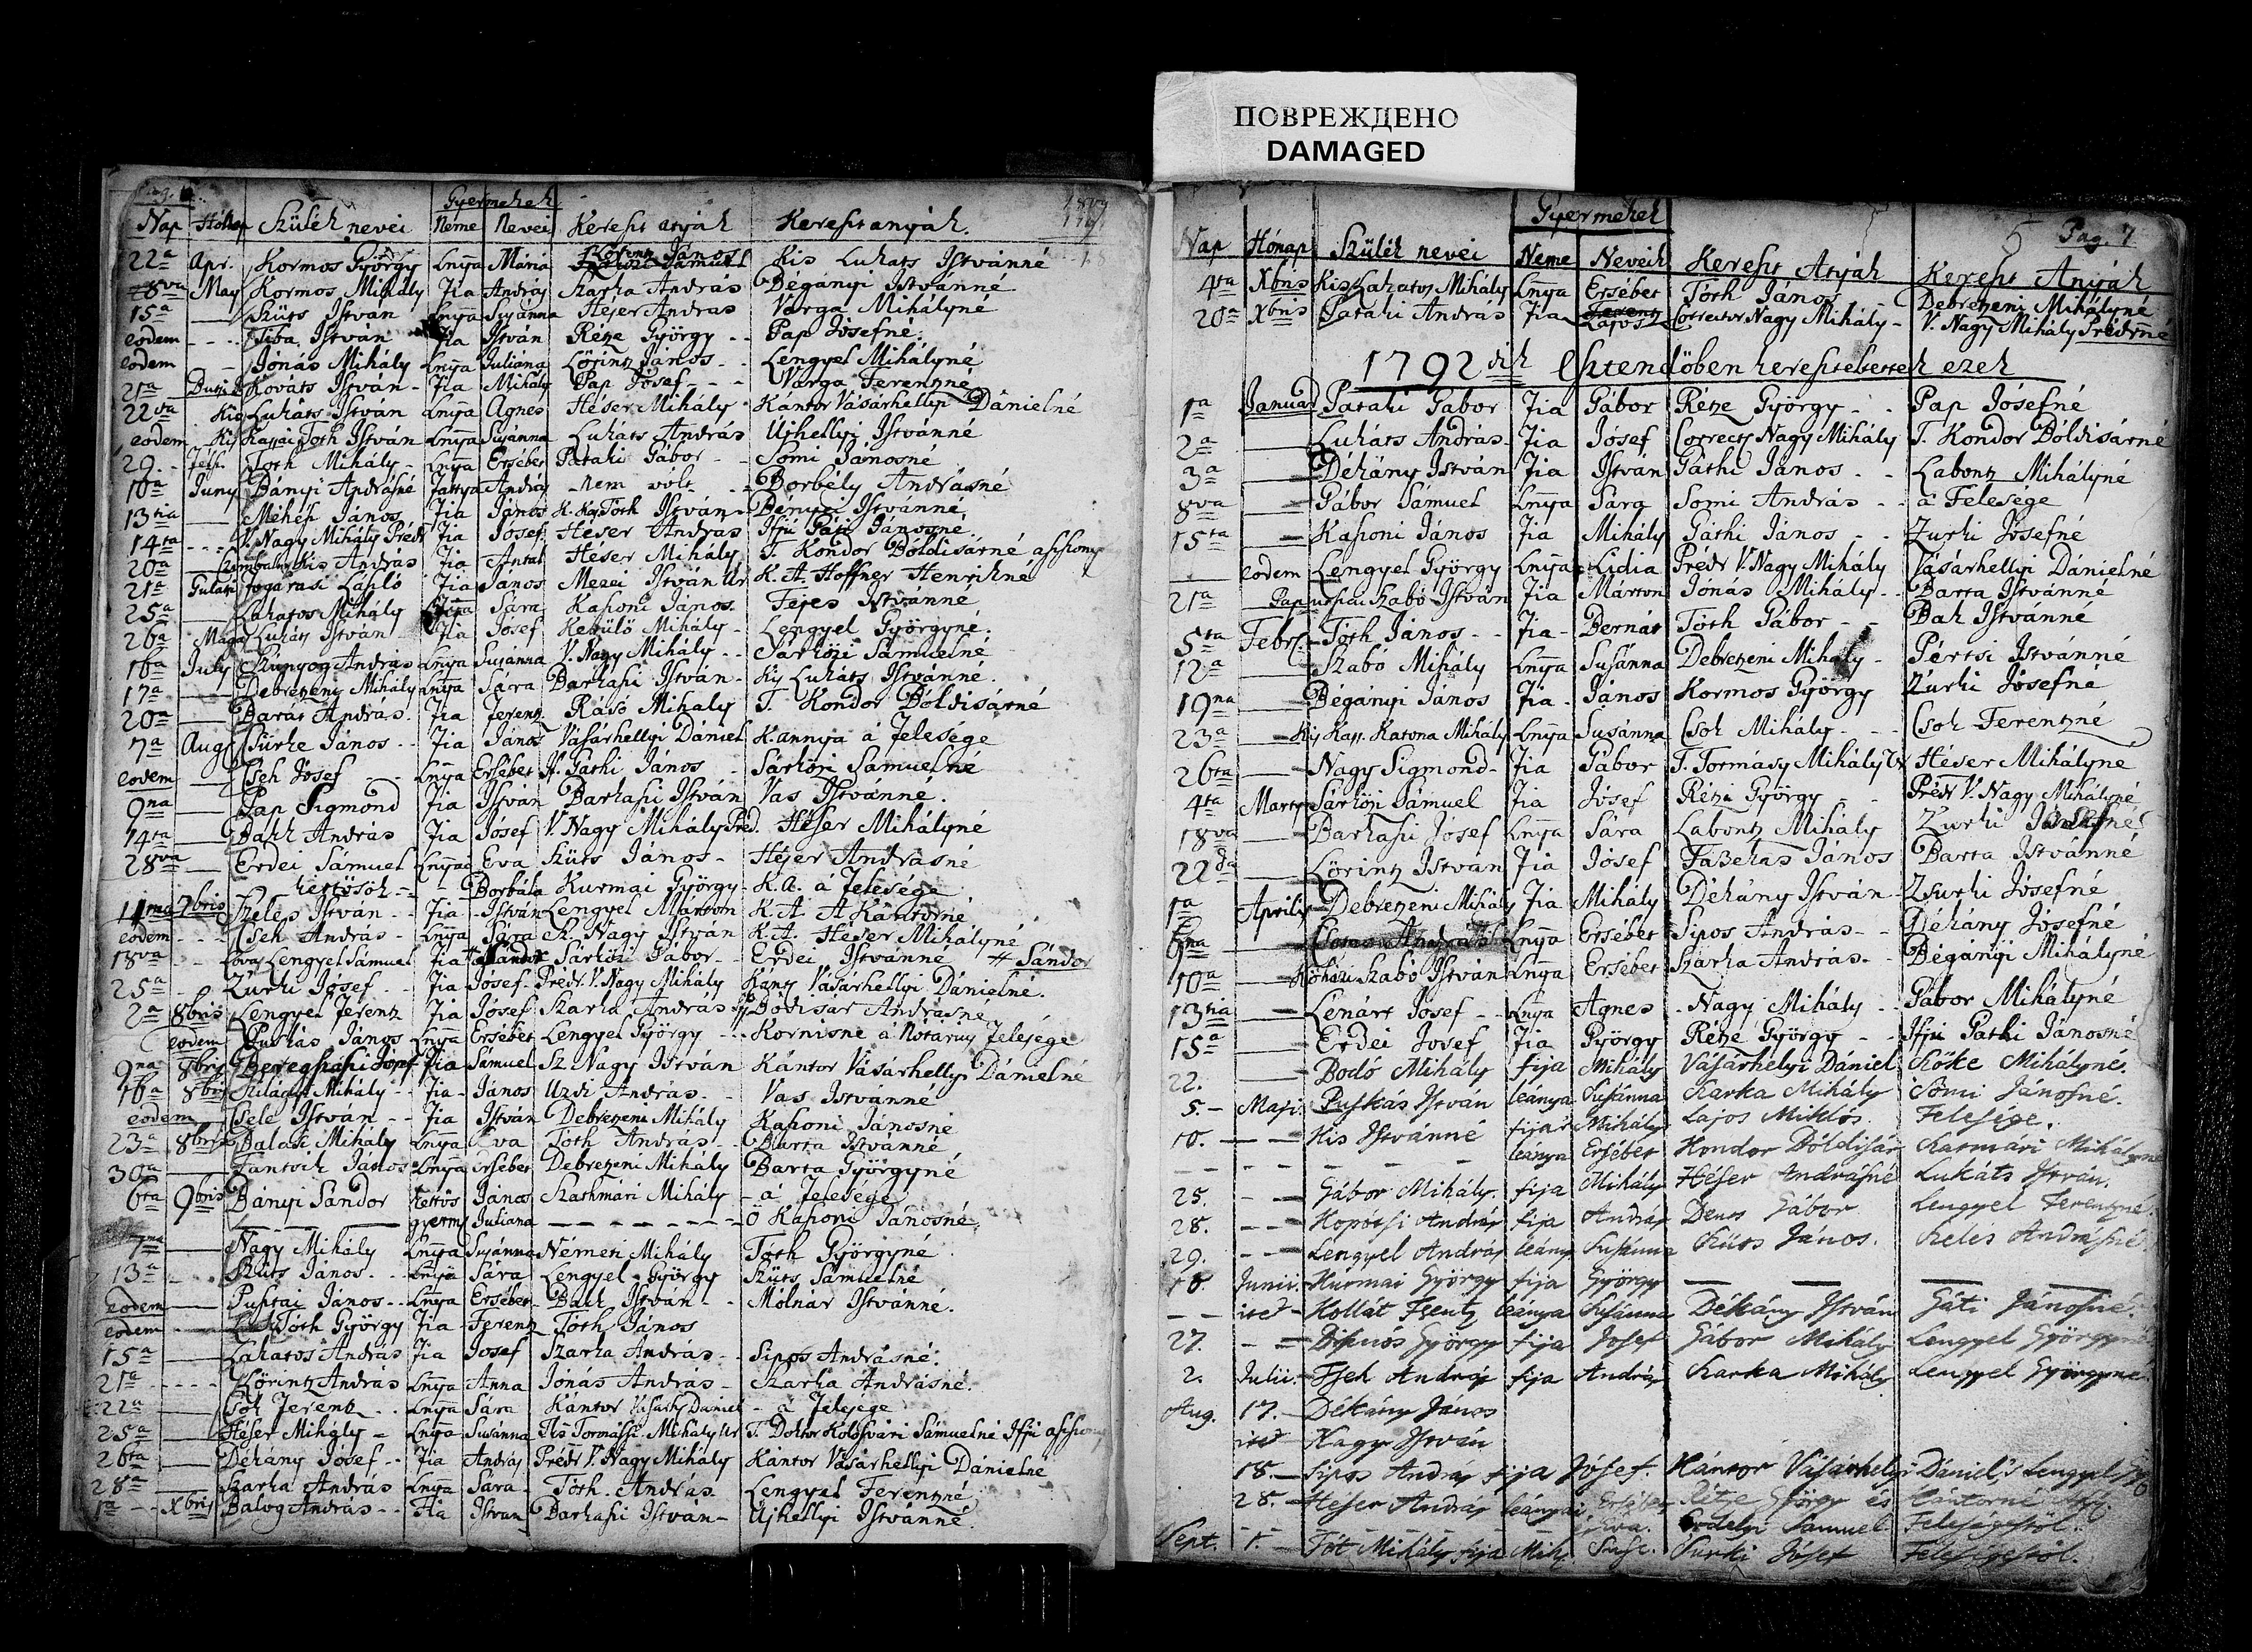 ПОВРЕЖДЕНО
DAMAGED
Gyermekek
Nap Hónap Szülék nevei Neme Nevei Kereszt atyák Kereszt anyák.
22a Apr. Kormos György Lnya Mária Kis Lukats Istvánné
8va May Kormos Mihály Fia András Szarka András Bégányi Istvánné
15a — Szüts István Lnya Susánna Héser András Varga Mihályné
eodem - - Tiba István Fia István Rétze György - - Pap Jósefné.
eodem - Jónás Mihály Lnya Juliána Lörintz János - - Lengyel Mihályné
21a Kováts István - Fia Mihály Pap Jósef - - - Varga Ferentzné
22da Kis Lukáts István Lnya Agnes Héser Mihály - Kántor Vásárhellyi Dánielné
eodem Kis Tóth István Lnya Susánna Lukáts András Ujhellyi Istvánné
29. - Tóth Mihály - Lnya Ersébet Pataki Gábor - - Somi Jánosné
10a Juny Bányi Andrásné Fattya András - nem vólt - - Borbély Andrásné
13tia — Méhes János Fia János Tóth István - Bényei Istvánné
14ta - - - V. Nagy Mihály Prédr Fia Jósef Héser András Ifjú Gáti Jánosné
20a — Kis András Fia Antal Héser Mihály T. Kondor Bóldisárné asszony
21a Fogarasi László Fia János Mezei István Ur K. A. Hoffner Henrikné
25a — Lakatos Mihály Sára Kasoni János Fejes Istvánné
26a Lukáts István Fia Jósef Mihály - Lengyel Györgyné.
16a July Szúnyog András Lnya Susánna V. Nagy Mihály - - Sárközi Sámuelné
17a — Debretzeny Mihály Lnya Sára Barkasi István - Kis Lukáts Istvánné.
20a — Barát András. Fia Ferentz Rásó Mihály T. Kondor Bóldisárné
7a Aug Szürke János - - Fia János Vásárhellyi Dániel K. annya á felesége
eodem — Cseh Jósef - - Lnya Ersébet If. Gáthi János - Sárközi Sámuelné
9na — Pap Sigmond Fia István Barkasi István Vas Istvánné.
14ta — Bakk András Fia Jósef V. Nagy Mihály Préd. Héser Mihályné
28va — Erdei Sámuel Lnya Eva Szüts János - Héser Andrásné
kettösök - - Borbála Kurmai György - K. A. á felesége
11ma 7bris Szeles István - - Fia - István Lengyel Márton K. A. A Kántorné
eodem - - - Cseh András - Lnya Sára Sz. Nagy István K. A. Héser Mihályné
18va - - Lengyel Sámuel Fia Sárközi Gábor - - Erdei Istvánné # Sándor
25a - Zurki Jósef - - Fia Jósef - Prédr. V. Nagy Mihály Kánt. Vásárhellyi Dánielné.
2a 8bris Lengyel Ferentz Fia Jósef Szarka András Bódisár Andrásné
eodem Puskás János Lnya Ersébet Lengyel György - - Kornisné á Nótárius felesége
9na 8bris Beregszászi Fia Sámuel Sz. Nagy István Kántor Vásárhellyi Dánielné
16a 8bris Szilágyi Mihály - - Fia - János Uzdi András - - Vas Istvánné
eodem Csele István - - Fia István Debretzeni Mihály Kasoni Jánosné
23a 8bris Balási Mihály Lnya Eva Tóth András - - Barta Istvánné
30a — János Lnya Ersébet Debretzeni Mihály Barta Györgyné
6ta 9bris Bányi Sándor kettös János Szathmári Mihály - á felesége
— — — gyerm Juliána - - - - - - - Kasoni Jánosné.
7ma — Nagy Mihály Lnya Susánna Németi Mihály Tóth Györgyné
13a - - Szüts János - - Lnya Sára Lengyel György Szüts Sámuelné
eodem — Pusztai János - - Lnya Ersébet Bakk István - - Mólnár Istvánné.
eodem — Tóth György Fia - Ferentz Tóth János
15a — Lakatos András Fia Josef Szarka András - - Sipos Andrásné.
21a - - - - Lörintz András Lnya Anna Jónás András - Szarka Andrásné.
22a — Csok Ferentz - - Lnya Sára Kántor Vásárh. Dániel - á felesége
25a — Héser Mihály - Lnya Susánna Tormássi Mihály Ur T. Doktor Kolosvári Sámuelné Ifju asszony
26ta — Dékány Jósef - - Fia András Prédr V. Nagy Mihály Kántor Vásárhellyi Dánielné
28a — Szarka András Lnya Sára - Tóth András. Lengyel Ferentzné
1a - - Xbris Balog András - - Fia István Barkasi István - Ujhellyi Istvánné.
5 Pag. 7
Gyermekek
Nap Hónap Szülék nevei Neme Neveik Kereszt Atyák Kereszt Anyák
4ta Xbris Kis Lakatos Mihály Lnya Ersébet Tóth János - - Debretzeni Mihályné
20a Xbris Pataki András Fia Lajos Corrector Nagy Mihály - V. Nagy Mihály Prédrné
1792dik Esztendöben kereszteltettek ezek
1a Január Pataki Gábor Fia Gábor Rétze György - - Pap Jósefné
2a — Lukáts András - Fia Jósef Nagy Mihály T. Kondor Bóldisárné
3a — Dékány István Fia István Gáthi János - - Labontz Mihályné
8va — Gábor Sámuel Lnya Sára Somi András - - á Felesége
15ta — Kasoni János Fia Mihály Gáthi János - - Zurki Jósefné
eodem Lengyel György Lnya Lidia Prédr V. Nagy Mihály Vásárhellyi Dánielné
21a Szabó István Fia Márton Jónás Mihály - - Barta Istvánné
5ta Febr. - Tóth János - - Fia - Bernát Tóth Gábor - - Bak Istvánné
12a — Szabó Mihály Lnya Susánna Debretzeni Mihály - Pértsi Istvánné
19na — Bégányi János Fia - János Kormos György Zurki Jósefné
23a — Kis Kap. Katona Mihály Lnya Susánna Csok Mihály - - - Csok Ferentzné
26ta — Nagy Sigmond - Fia Gábor T. Tormásy Mihály Ur Héser Mihályné
4ta Marty Sárközi Sámuel Fia Jósef Rétzi György - - Prédr V. Nagy Mihályné
18va — Barkasi Jósef Lnya Sára Labontz Mihály Zurki Jósefné
22da — Lörintz István Fia Jósef Fazekas János Barta Istvánné
1a Aprilis Debretzeni Mihály Fia Mihály Dékány István - Zsurki Jósefné
— András Lnya Ersébet Sipos András - - Dékány Jósefné
10a — Szabó István Lnya Ersébet Szarka András - - Bégányi Mihályné
13tia — Lénárt Jósef - - Lnya Agnes - Nagy Mihály - - Gábor Mihályné
15a — Erdei Josef Fia György Rétze György - - Ifju Gathi Jánosné
22. — Bodó Mihály fija Mihály Vásárhelyi Dániel Szöke Mihályné.
5. - Maji. Puskás István leánya Susánna Szarka Mihály Somi Jánosné.
10. — — Kis Istvánné fija Mihály Lajos Miklós Felesége.
- - - - - - - leánya Ersébet Kondor Bóldisár Katmári Mihályné
25. - - Gábor Mihály. fija Mihály Héser Andrásné Lukáts István.
28. - - Kopótsi András fija András Denes Gábor Lengyel Ferentzné.
29. - - Lengyel András leány Susánna Szüts János. Szeles Andrásné.
10. Junii. Kurmai György fija György — — — —
- - itd - Kollát Frentz leánya Susánna Dékány István Gáti Jánosné.
27. - - György fija Josef Gábor Mihály Lengyel Györgyné
2. Julii. Tseh András fija András Szarka Mihály Lengyel Györgyné
Aug. 17. — Dékány János
itd Nagy István
18. — Sipos András fija Jósef. Kántor Vásárhelyi Dániel, 's Lengyel
28. — Héser András leányai Ersébet Rétze György és Kántorné
's Eva. Erdelyi Samuel Feleségestöl.
Sept. 1. — Tót Mihály fija Mih. Surki Jósef Feleségestöl.